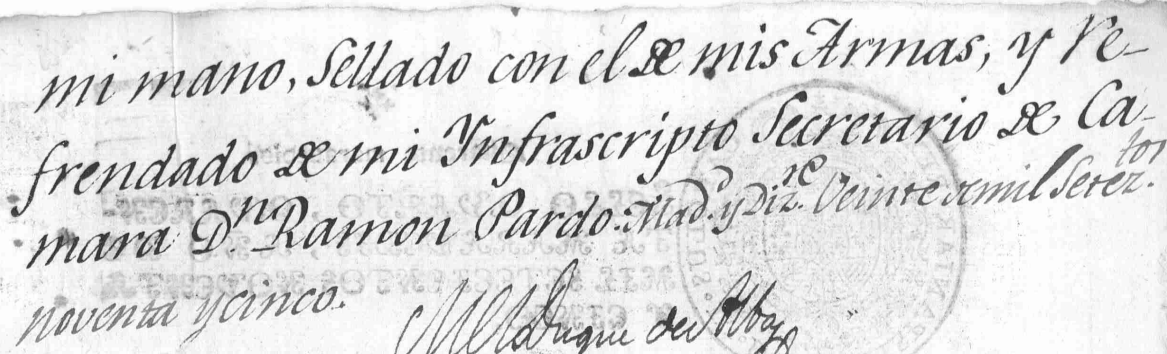 mi mano, Sellado con el de mis Armas, y Re-
frendado de mi Ynfrascripto Secretario de Ca-
mara D.n Ramon Pardo. Mad.d y Diz.re Veinte de mil Setez.tos
noventa y cinco.
el Duque de Alba